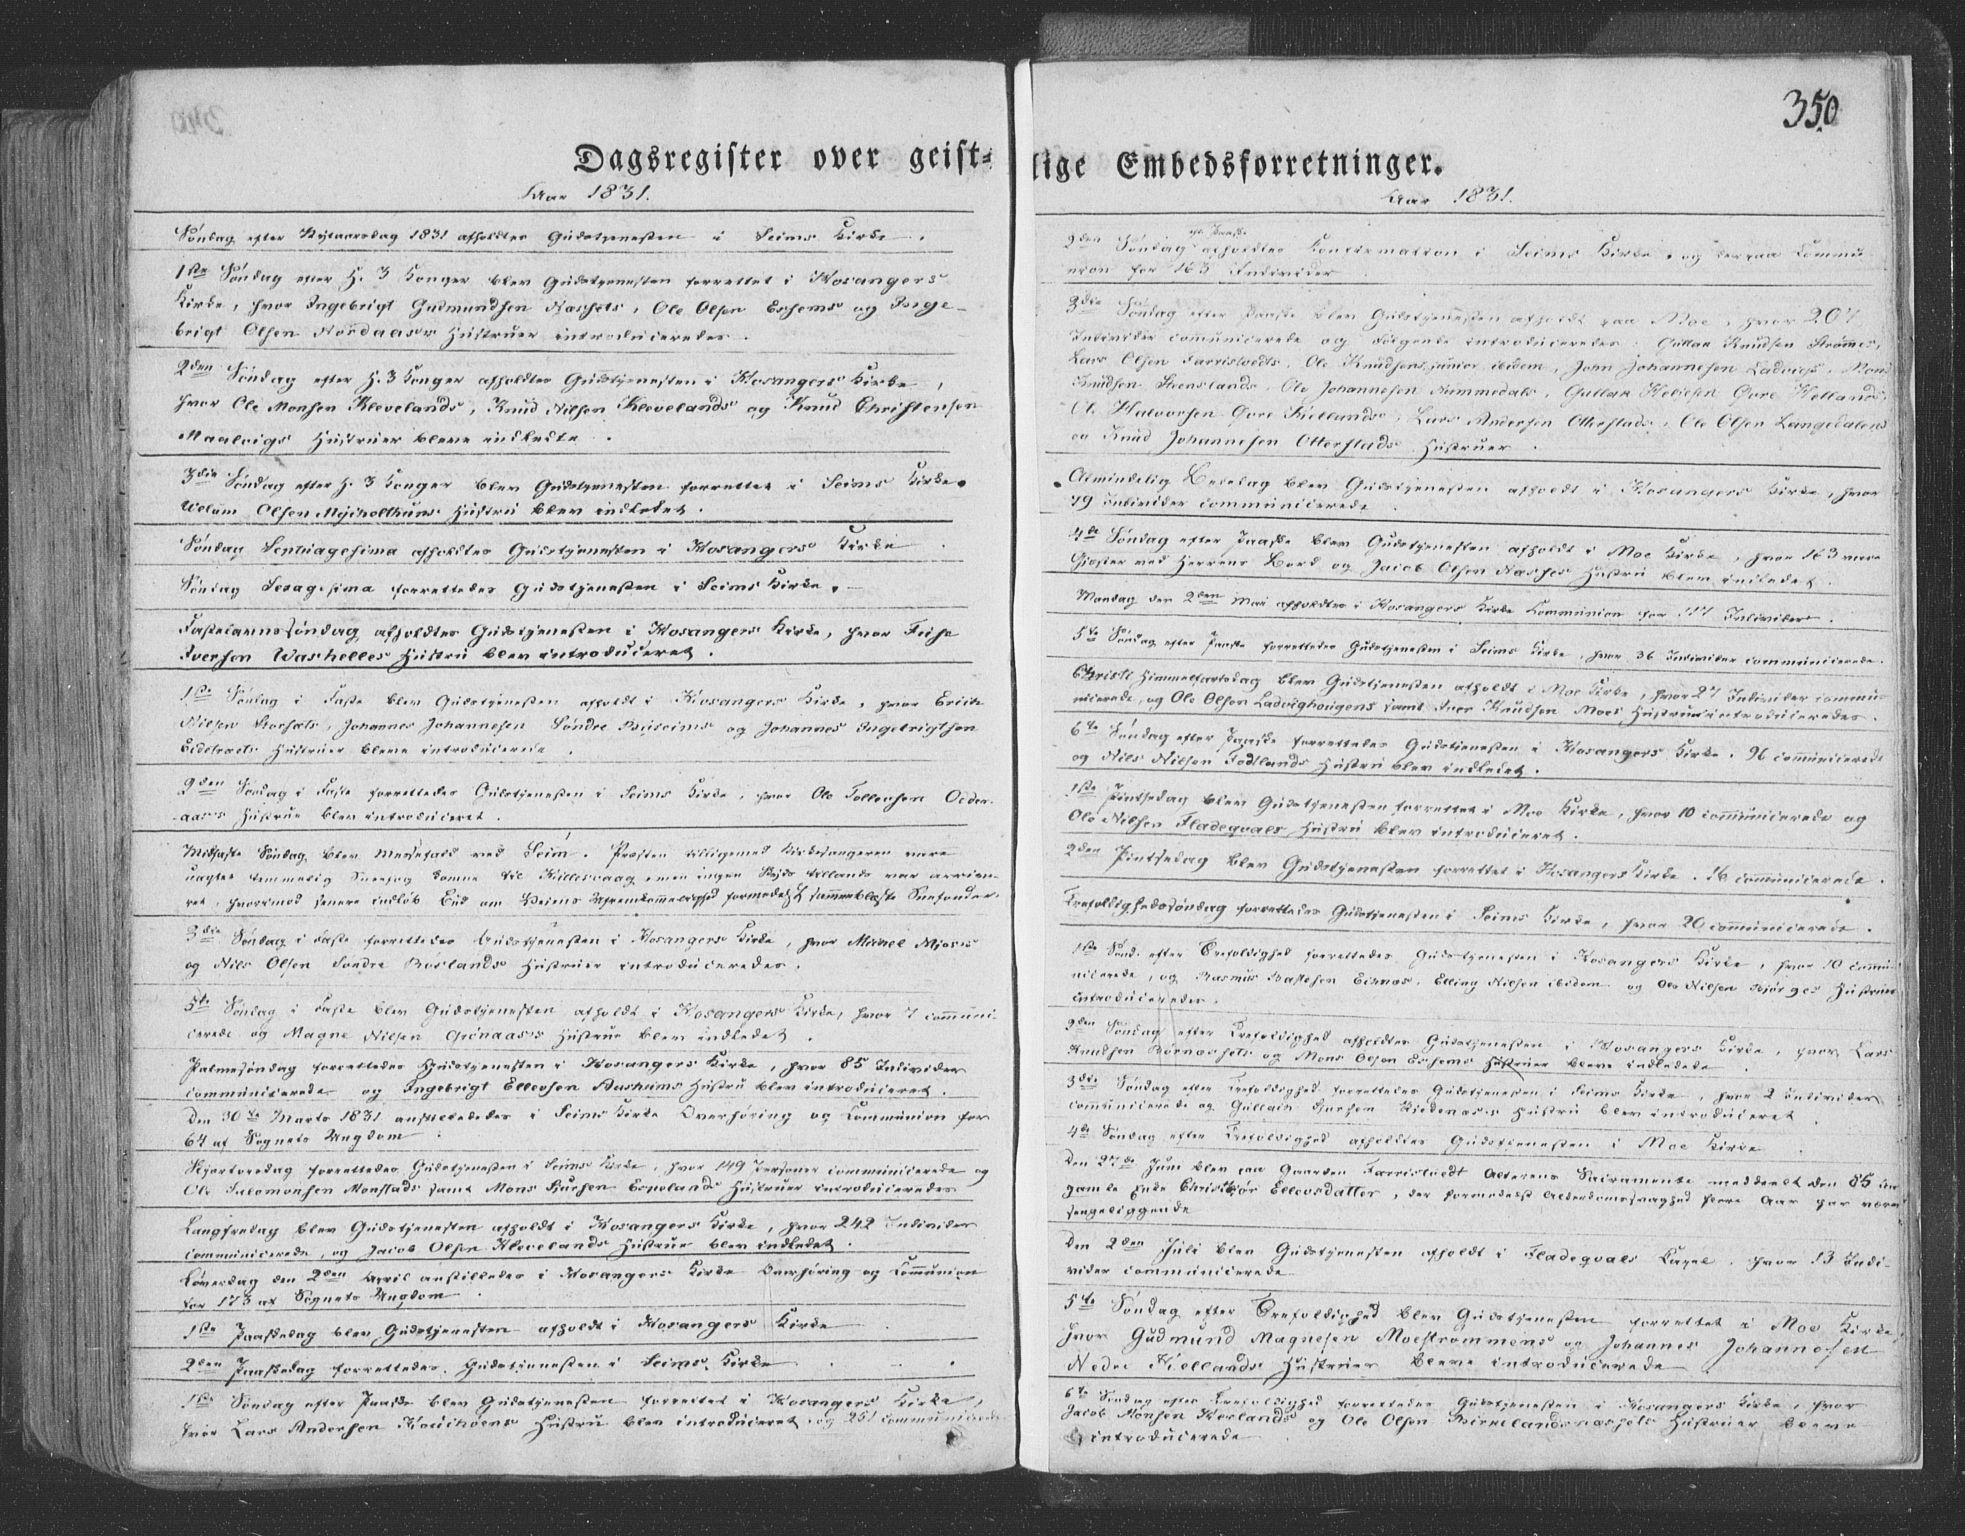 350
Dagsregister over geist=
lige Embedsforretninger.
Aar 1831.
Aar 1831.
Søndag efter Nytaarsdag 1831 afholdtes Gudstjenesten i Seims Kirke.
1ste Søndag efter H. 3 Konger blev Gudstjenesten forrettet i Hosangers
Kirke, hvor Ingebrigt Gudmundsen, Ole Olsen Eshems og Inge-
brigt Olsen Nordaases Hustruer introduceredes.
2den Søndag efter H. 3 Konger afholdtes Gudstjenesten i Hosangers Kirke,
hvor Ole Monsen Klevelands, Knud Nilsen Klevelands og Knud Christensen
Maalvigs Hustruer bleve indledte.
3die Søndag efter H. 3 Konger blev Gudstjenesten forrettet i Seims Kirke.
Olsen Hustru blev indledet.
Søndag Septuagesima afholdtes Gudstjenesten i Hosangers Kirke
Søndag Sexagesima forrettedes Gudstjenesten i Seims Kirke.
Fastelavnssøndag afholdtes Gudstjenesten i Hosangers Kirke, hvor
Iversen Hustru blev introduceret.
1ste Søndag i Faste blev Gudstjenesten afholdt i Hosangers Kirke, hvor Erick
Nilsen, Johannes Johannesen Søndre og Johannes Ingebrigtsen
Hustruer bleve introducerede.
2den Søndag i Faste forrettedes Gudstjenesten i Seims Kirke, hvor Ole Tollevsen Odder-
aases Hustrue blev introduceret.
Midfaste Søndag blev Messefald ved Seim. Præsten tilligemed Kirkesangeren vare
uagtet temmelig Snefog komne til Killesvaag, men ingen Skyds tillands var arrive-
ret, hvorimod senere indløb Bud om Veiens Ufremkommelighed formedelst sammenblæste Snefonder.
3die Søndag i Faste forrettedes Gudstjenesten i Hosangers Kirke, hvor Mickel
og Nils Olsen Søndre Hustruer introduceredes.
5te Søndag i Faste blev Gudstjenesten afholdt i Hosangers Kirke, hvor 7 communi-
cerede og Magne Nilsen Grønaases Hustrue blev indledet.
Palmesøndag forrettedes Gudstjenesten i Hosangers Kirke, hvor 85 Individer
communicerede og Ingebrigt Ellevsen Hustru blev introduceret.
Den 30te Marts 1831 anstilledes i Seims Kirke Overhøring og Communion for
64 af Sognets Ungdom
Skjertorsdag forrettedes Gudstjenesten i Seims Kirke, hvor 149 Personer communicerede og
Ole Salomonsen Monstads samt Mons Espelands Hustruer introduceredes
Langfredag blev Gudstjenesten afholdt i Hosangers Kirke, hvor 242 Individer
communicerede, og Jacob Olsen Klevelands Hustrue blev indledet.
Løverdag den 2den April anstilledes i Hosangers Kirke Overhøring og Communion
for 173 af Sognets Ungdom.
1ste Paaskedag blev Gudstjenesten afholdt i Hosangers Kirke
2den Paaskedag forrettedes Gudstjenesten i Seims Kirke
1ste Søndag efter Paaske blev Gudstjenesten forrettet i Hosangers Kirke,
hvor Lars Andersen Hustru blev introduceret og 251 communicerede
2den Søndag ef. Paaske afholdtes Confirmation i Seims Kirke, og derpaa Commu-
nion for 163 Individer
3die Søndag efter Paaske blev Gudstjenesten afholdt paa Moe, hvor 207
Individer communicerede og følgende introduceredes: Gullak Knudsen Strømes,
Lars Olsen Farrisvedts, Ole Knudsens junior ibidem, John Johannesen Ladvigs, Mons
Knudsen Steenslands, Ole Johannesen, Gullak Øvre
Ole Halvorsen Øvre, Lars Andersen Otterstads, Ole Olsen Langedalens
og Knud Johannesen Otterstads Hustruer.
Almindelig Bededag blev Gudstjenesten afholdt i Hosangers Kirke, hvor
79 Individer communicerede
4de Søndag efter Paaske blev Gudstjenesten afholdt i Moe Kirke, hvor 163 vare
Gjæster ved Herrens Bord og Jacob Olsen Hustru blev indledet.
Mandag den 2den Mai afholdtes i Hosangers Kirke Communion for 117 Individer.
5te Søndag efter Paaske forrettedes Gudstjenesten i Seims Kirke, hvor 36 Individer communicerede.
Christi Himmelfartsdag blev Gudstjenesten afholdt i Moe Kirke, hvor 27 Individer commu-
nicerede, og Ole Olsen Ladvighougens samt Iver Knudsen Moes Hustruer introduceredes.
6te Søndag efter Paaske forrettedes Gudstjenesten i Hosangers Kirke. 96 communicerede
og Nils Nilsen Fodtlands Hustru blev indledet.
1ste Pintsedag blev Gudstjenesten forrettet i Moe Kirke, hvor 10 communicerede og
Ole Nilsen Fladeqvals Hustru blev introduceret.
2den Pintsedag blev Gudstjenesten forrettet i Hosangers Kirke. 16 communicerede.
Trefoldighedssøndag forrettedes Gudstjenesten i Seims Kirke, hvor 20 communicerede.
1ste Sønd. efter Trefoldighed forrettedes Gudstjenesten i Hosangers Kirke, hvor 10 commu-
nicerede, og Rasmus, Elling Nilsen ibidem og Ole Nilsen Hustruer
introduceredes.
2den Søndag efter Trefoldighed afholdtes Gudstjenesten i Hosangers Kirke, hvor Lars
Knudsen og Mons Olsen Eshems Hustruer bleve indledede.
3die Søndag efter Trefoldighed forrettedes Gudstjenesten i Seims Kirke, hvor 2 Individer
communicerede og Hustru blev introduceret
4de Søndag efter Trefoldighed afholdtes Gudstjenesten i Moe Kirke
Den 27de Juni blev paa Gaarden Farrisvedt Alterens Sacramente meddeelt den 85 aar
gamle Enke Ellevsdatter, der formedelst Alderdomssvaghed flere Aar har været
sengeliggende
Den 2den Juli blev Gudstjenesten afholdt i Fladeqvals Capel, hvor 13 Indi-
vider communicerede
5te Søndag efter Trefoldighed blev Gudstjenesten forrettet i Moe Kirke
hvor Gudmund Magnesen Moestrømmens og Johannes Johannesen
Nedre Hustruer bleve introducerede
6te Søndag efter Trefoldighed forrettedes Gudstjenesten i Hosangers Kirke, hvor
Jacob Monsen og Ole Olsen Hustruer bleve
introducerede